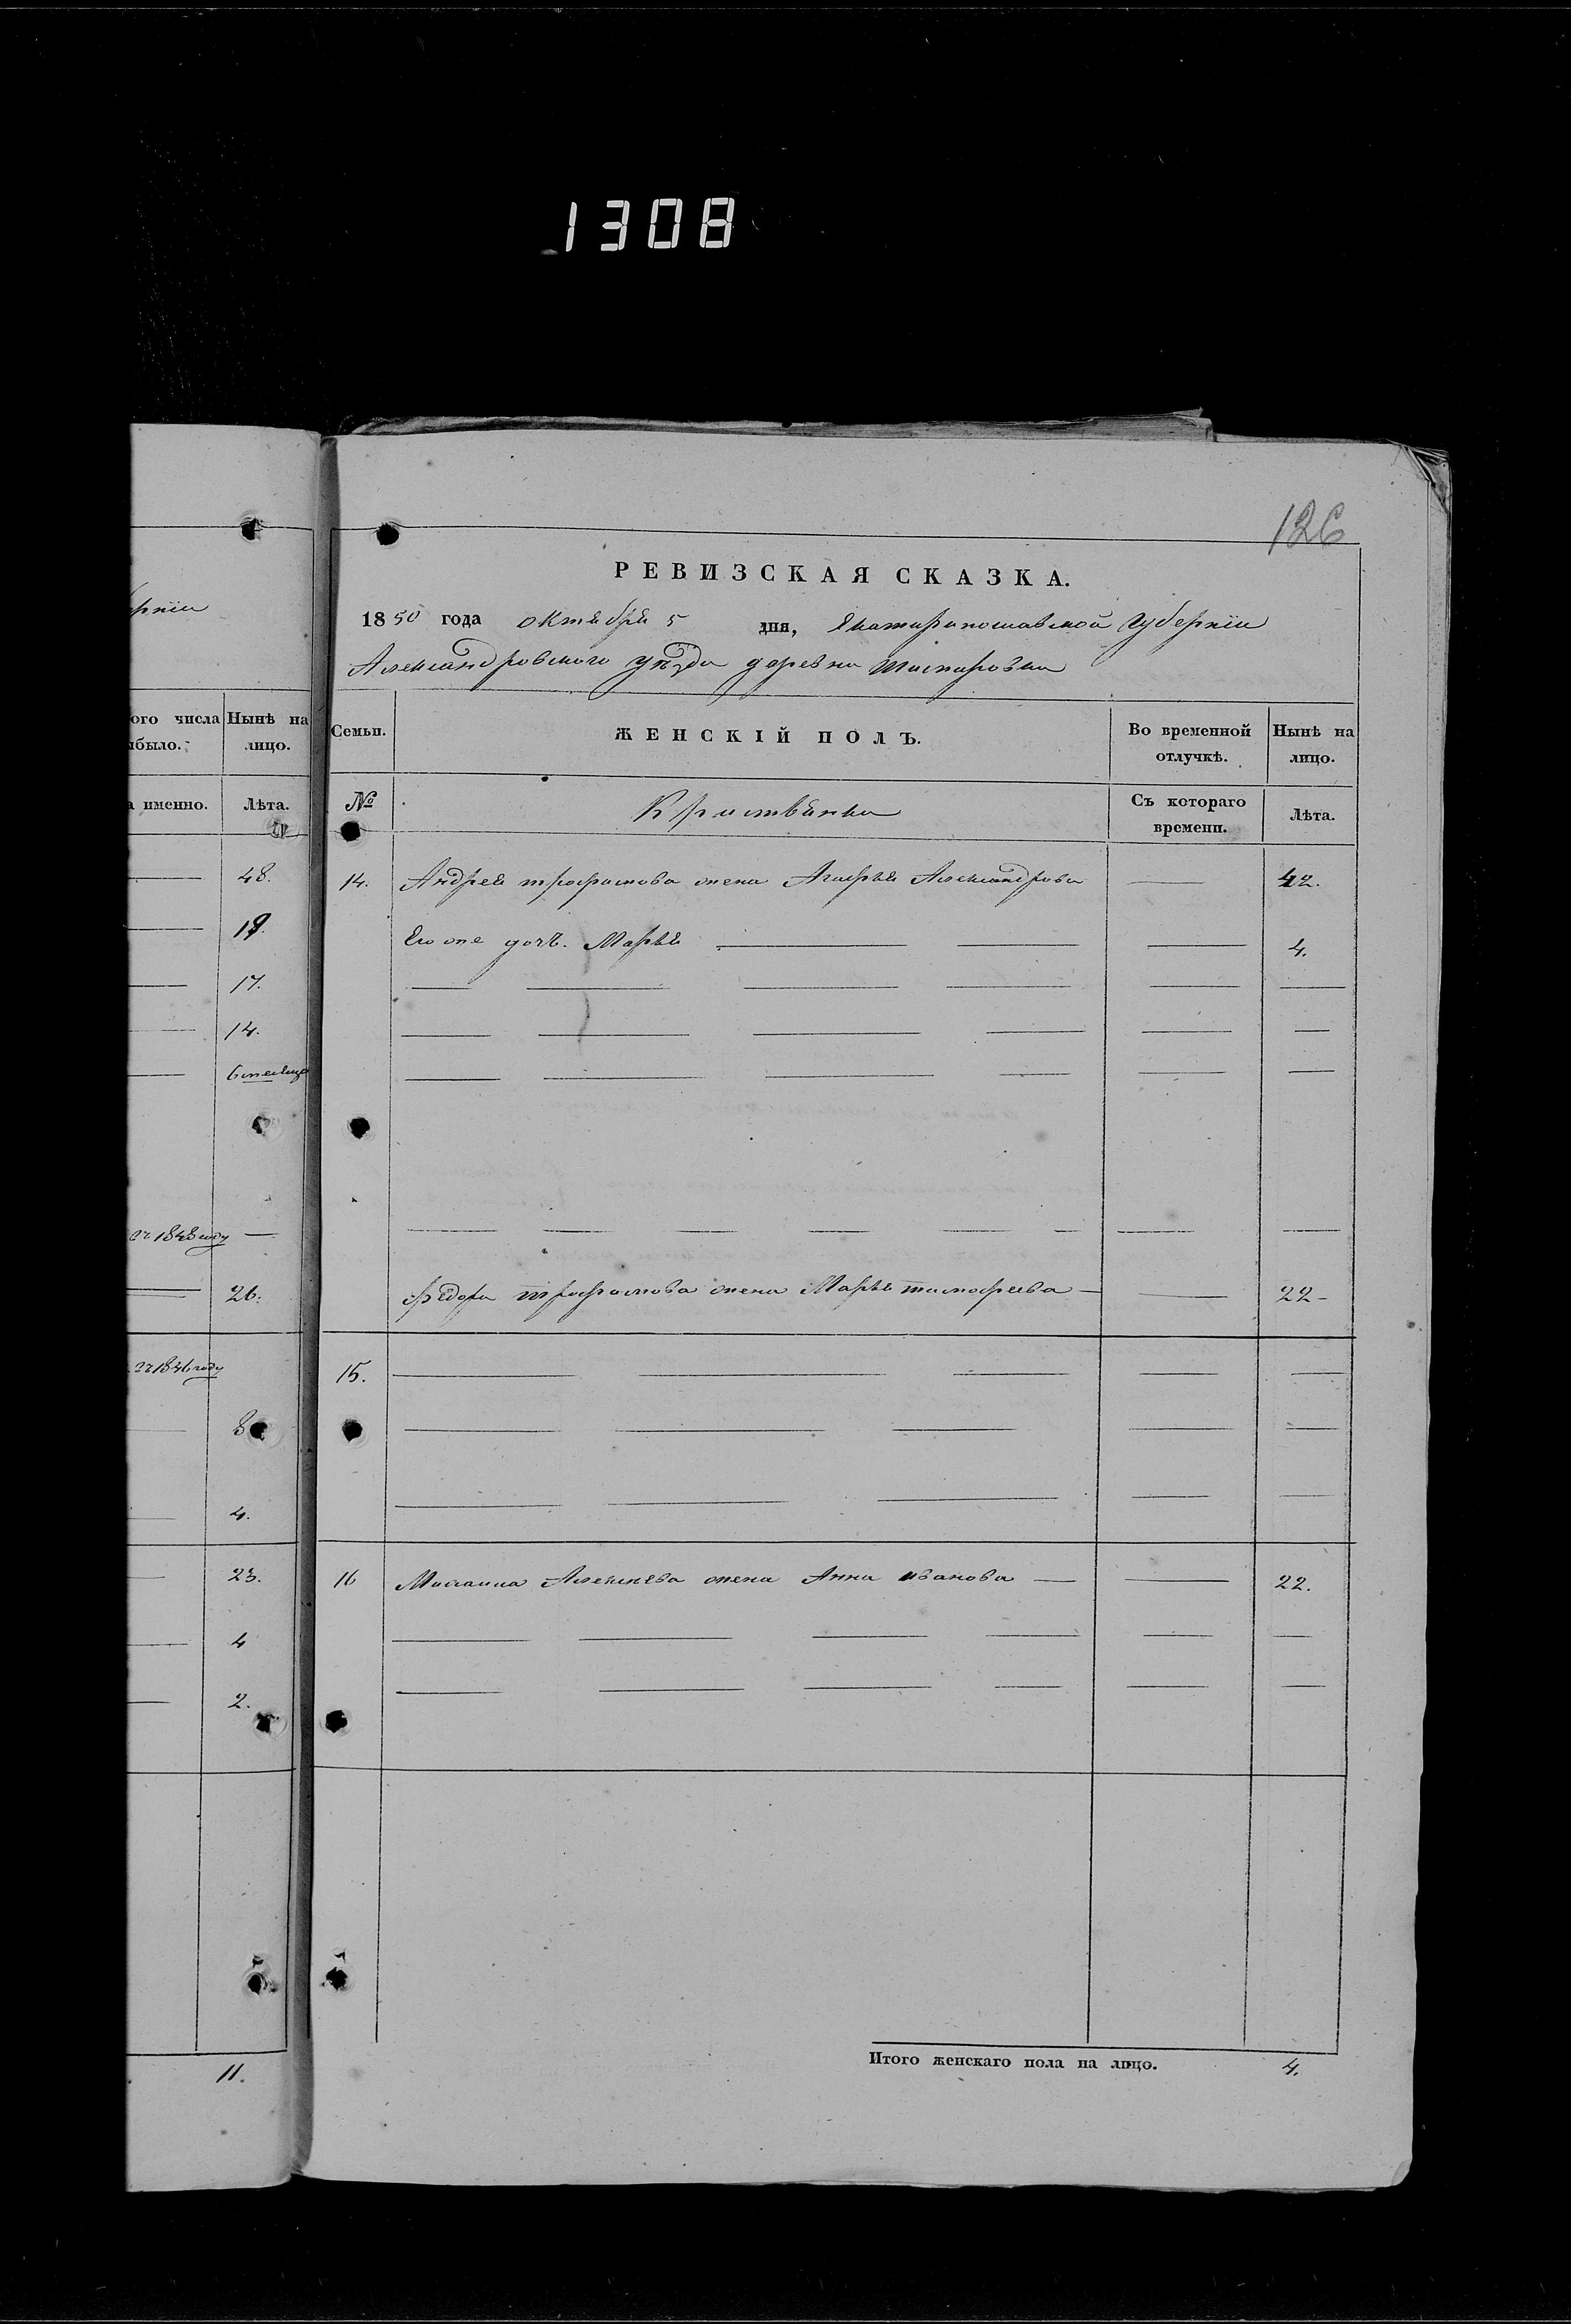 1308
126
РЕВИЗСКАЯ СКАЗКА.
1850 года октября 5 дня, Екатеринославской Губернiи
Александровского уѣзда деревни
ого числа
было.
Нынѣ на
лицо.
а именно.
Лѣта.
48.
19.
17.
14.
6 месяца
1848 году —
26.
1846 году
8
4.
23.
4
2.
11.
Семьи.
ЖЕНСКІЙ ПОЛЪ.
Во временной
отлучкѣ.
Нынѣ на
лицо.
№
Съ котораго
времени.
Лѣта.
14. Андрея трофимова жена Александрова — 42.
Его же дочь. Марья — 4.
Федора трофимова жена Марья тимофеева — 22 -
15.
16 Михаила Алексѣева жена Анна иванова — 22.
Итого женскаго пола на лицо. 4.